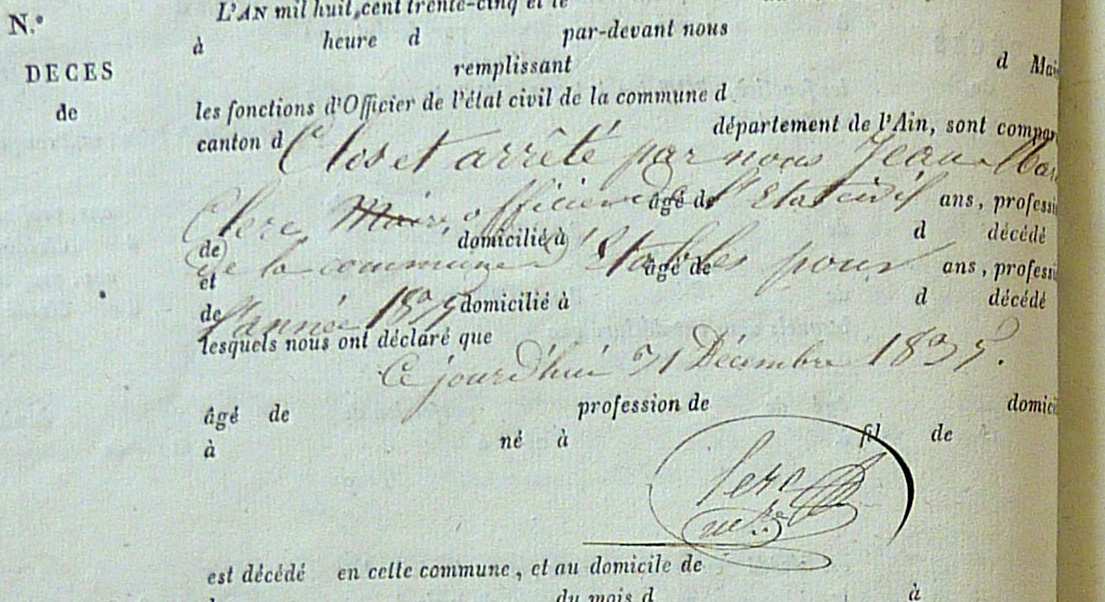 N.º
L'AN mil huit cent trente-cinq et le
à heure d par-devant nous
DECES
remplissant d Mai
de
les fonctions d'Officier de l'état civil de la commune d
canton d département de l'Ain, sont compar
Clos et arrêté par nous Jean Mar
Clerc Maire, officier de l'Etat civil
âgé de ans, professi
de domicilié à d décédé
de la commune d' pour
et âgé de ans, professi
l'année 1835
de domicilié à d décédé
lesquels nous ont déclaré que
Ce jourd'hui 31 Décembre 1835.
âgé de profession de domici
à né à fil de
Clerc
est décédé en cette commune, et au domicile de
du mois d à